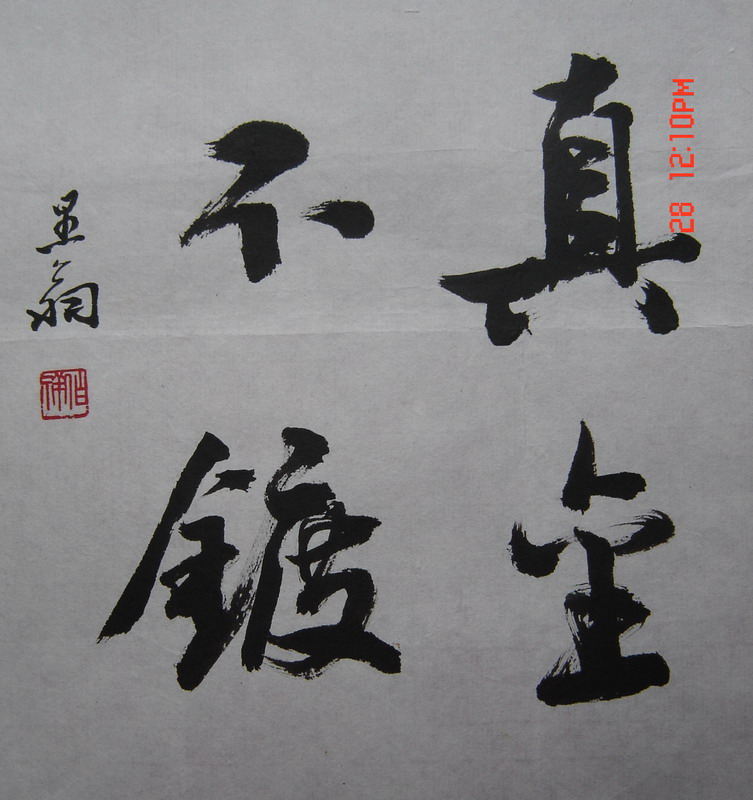 真金
不鍍
翁
28 12:10PM